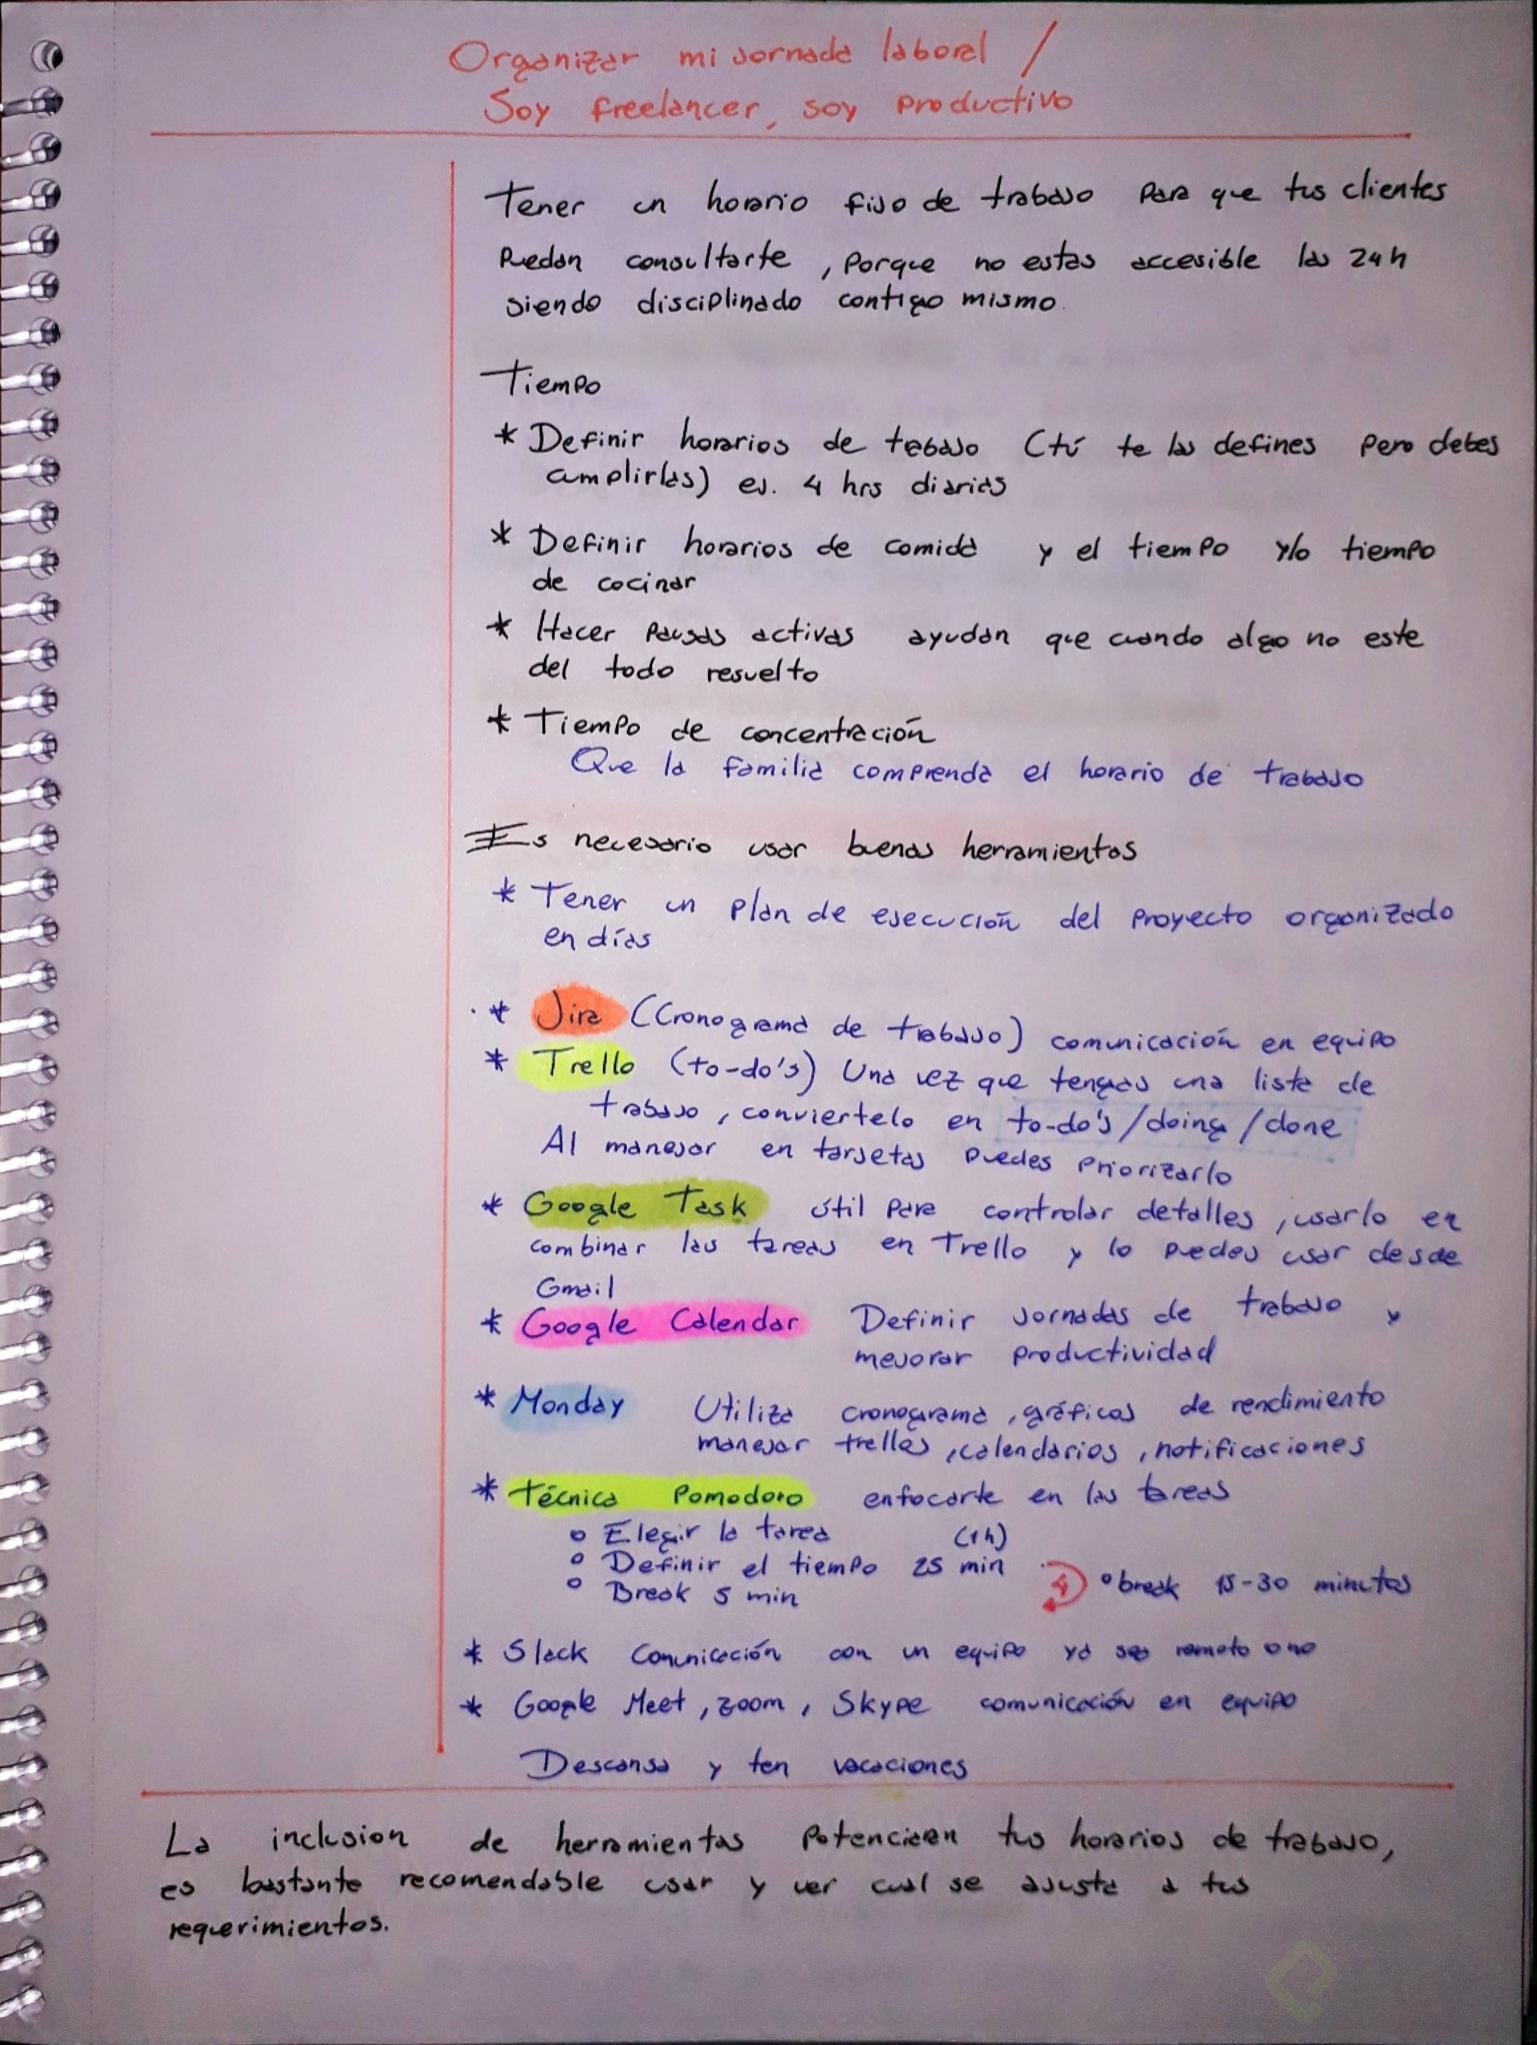 Organizar mi jornada laboral /
Soy freelancer, soy productivo
Tener un horario fijo de trabajo para que tus clientes
puedan consultarte, porque no estas accesible las 24h
siendo disciplinado contigo mismo.
Tiempo
* Definir horarios de trabajo (tú te las defines pero debes
cumplirlas) ej. 4 hrs diarias
* Definir horarios de comida y el tiempo y/o tiempo
de cocinar
* Hacer pausas activas ayudan que cuando algo no este
del todo resuelto
* Tiempo de concentración
Que la familia comprenda el horario de trabajo
Es necesario usar buenas herramientas
* Tener un plan de ejecución del proyecto organizado
en días
* Jira (Cronograma de trabajo) comunicación en equipo
* Trello (to-do's) Una vez que tengas una lista de
trabajo, conviertelo en to-do's/doing/done
Al manejar en tarjetas puedes priorizarlo
* Google Task útil para controlar detalles, usarlo en
combinar las tareas en Trello y lo puedes usar desde
Gmail
* Google Calendar Definir jornadas de trabajo y
mejorar productividad
* Monday Utiliza cronograma, gráficos de rendimiento
manejar trellos, calendarios, notificaciones
* Técnica Pomodoro enfocarte en las tareas
o Elegir la tarea (1h)
o Definir el tiempo 25 min
o Break 5 min 4 o break 15-30 minutos
* Slack Comunicación con un equipo ya sea remoto o no
* Google Meet, zoom, Skype comunicación en equipo
Descansa y ten vacaciones
La inclusion de herramientas potencian tus horarios de trabajo,
es bastante recomendable usar y ver cual se ajusta a tus
requerimientos.